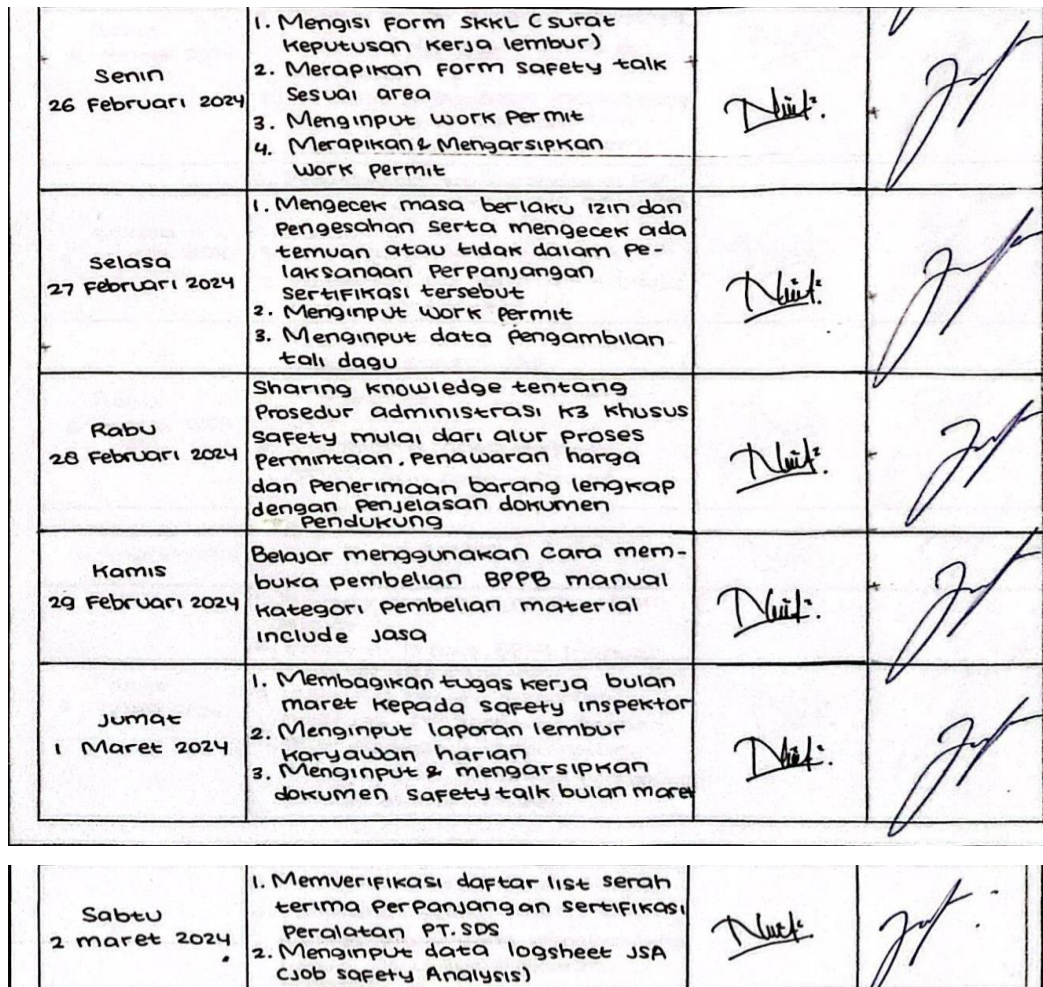 1. Mengisi Form SKKL (surat
Keputusan Kerja lembur)
2. Merapikan Form Safety talk
Sesuai area
3. Menginput work Permit
4. Merapikan & Mengarsipkan
Work permit
Senin
26 Februari 2024
1. Mengecek masa berlaku izin dan
Pengesahan serta mengecek ada
temuan atau tidak dalam Pe-
laksanaan Perpanjangan
sertifikasi tersebut
2. Menginput work Permit
3. Menginput data Pengambilan
tali dagu
Selasa
27 Februari 2024
Sharing Knowledge tentang
Prosedur administrasi K3 Khusus
Safety mulai dari alur Proses
Permintaan, Penawaran harga
dan Penerimaan barang lengkap
dengan Penjelasan dokumen
Pendukung
Rabu
28 Februari 2024
Belajar menggunakan Cara mem-
buka pembelian BPPB manual
Kategori Pembelian material
include Jasa
Kamis
29 Februari 2024
1. Membagikan tugas kerja bulan
maret kepada safety inspektor
2. Menginput laporan lembur
Karyawan harian
3. Menginput & mengarsipkan
dokumen safety talk bulan maret
Jumat
1 Maret 2024
1. Memverifikasi daftar list serah
terima Perpanjangan Sertifikasi
Peralatan PT. SDS
2. Menginput data logsheet JSA
(Job safety Analysis)
Sabtu
2 maret 2024